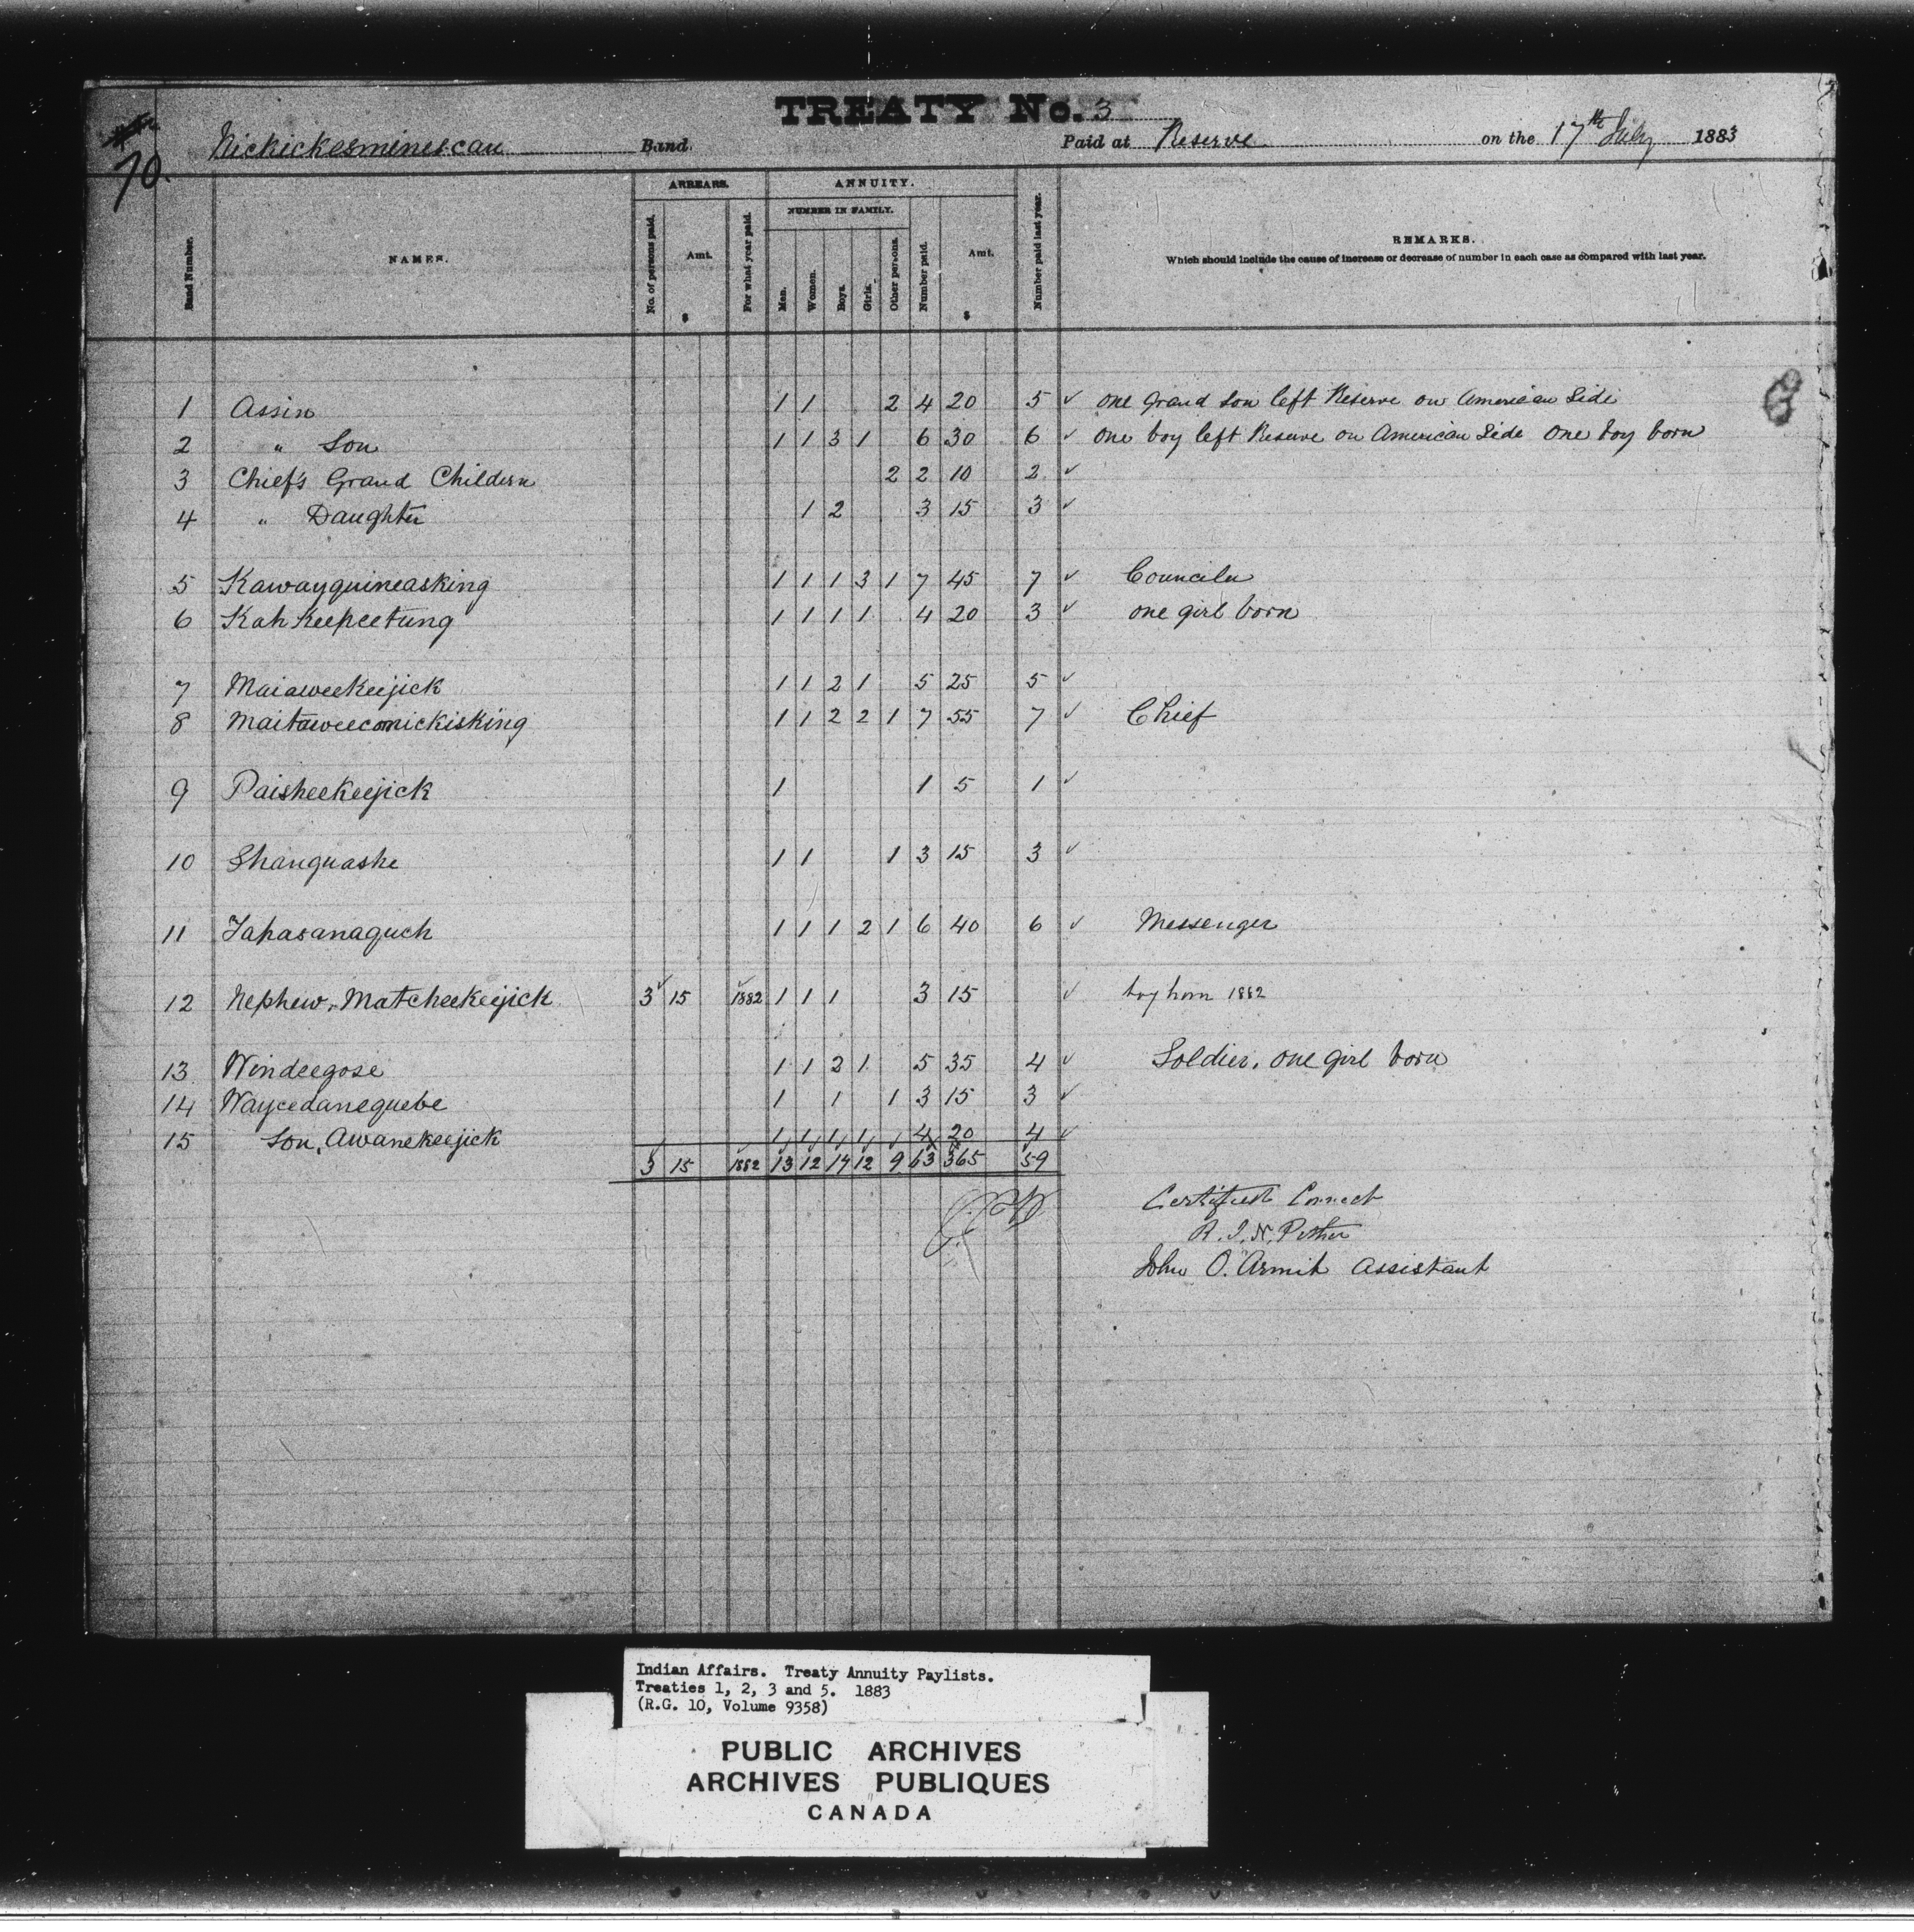 TREATY No. 3
70. Nickickesminescau Band Paid at Reserve on the 17th July 1883
ARREARS. ANNUITY.
NUMBER IN FAMILY.
Band Number. NAMES. No. of persons paid. Amt. $ For what year paid. Men. Women. Boys. Girls. Other persons. Number paid. Amt. $ Number paid last year. REMARKS.
Which should include the cause of increase or decrease of number in each case as compared with last year.
1 Assin 1 1 2 4 20 5 ✓ one grand son left Reserve on American Side
2 " Son 1 1 3 1 6 30 6 ✓ one boy left Reserve on American Side One boy born
3 Chief's Grand Childern 2 2 10 2 ✓
4 " Daughter 1 2 3 15 3 ✓
5 Kawayquineasking 1 1 1 3 1 7 45 7 ✓ Counciler
6 Kah Keepeetung 1 1 1 1 4 20 3 ✓ one girl born
7 Maiaweekeejick 1 1 2 1 5 25 5 ✓
8 Maitaweeconickisking 1 1 2 2 1 7 55 7 ✓ Chief
9 Paisheekeejick 1 1 5 1 ✓
10 Shanguashe 1 1 1 3 15 3 ✓
11 Tapasanaguch 1 1 1 2 1 6 40 6 ✓ Messenger
12 Nephew, Matcheekeejick 3 ✓ 15 1882 ✓ 1 1 1 3 15 ✓ boy born 1882
13 Windeegose 1 1 2 1 5 35 4 ✓ Soldier, one girl born
14 Waycedanequebe 1 1 1 3 15 3 ✓
15 Son, Awanekeejick 1 1 1 1 4 20 4 ✓
3 15 1882 13 12 14 12 9 63 365 59
Certified Correct
R. J. N. Pither
John O. Armit Assistant
Indian Affairs. Treaty Annuity Paylists.
Treaties 1, 2, 3 and 5. 1883
(R.G. 10, Volume 9358)
PUBLIC ARCHIVES
ARCHIVES PUBLIQUES
CANADA